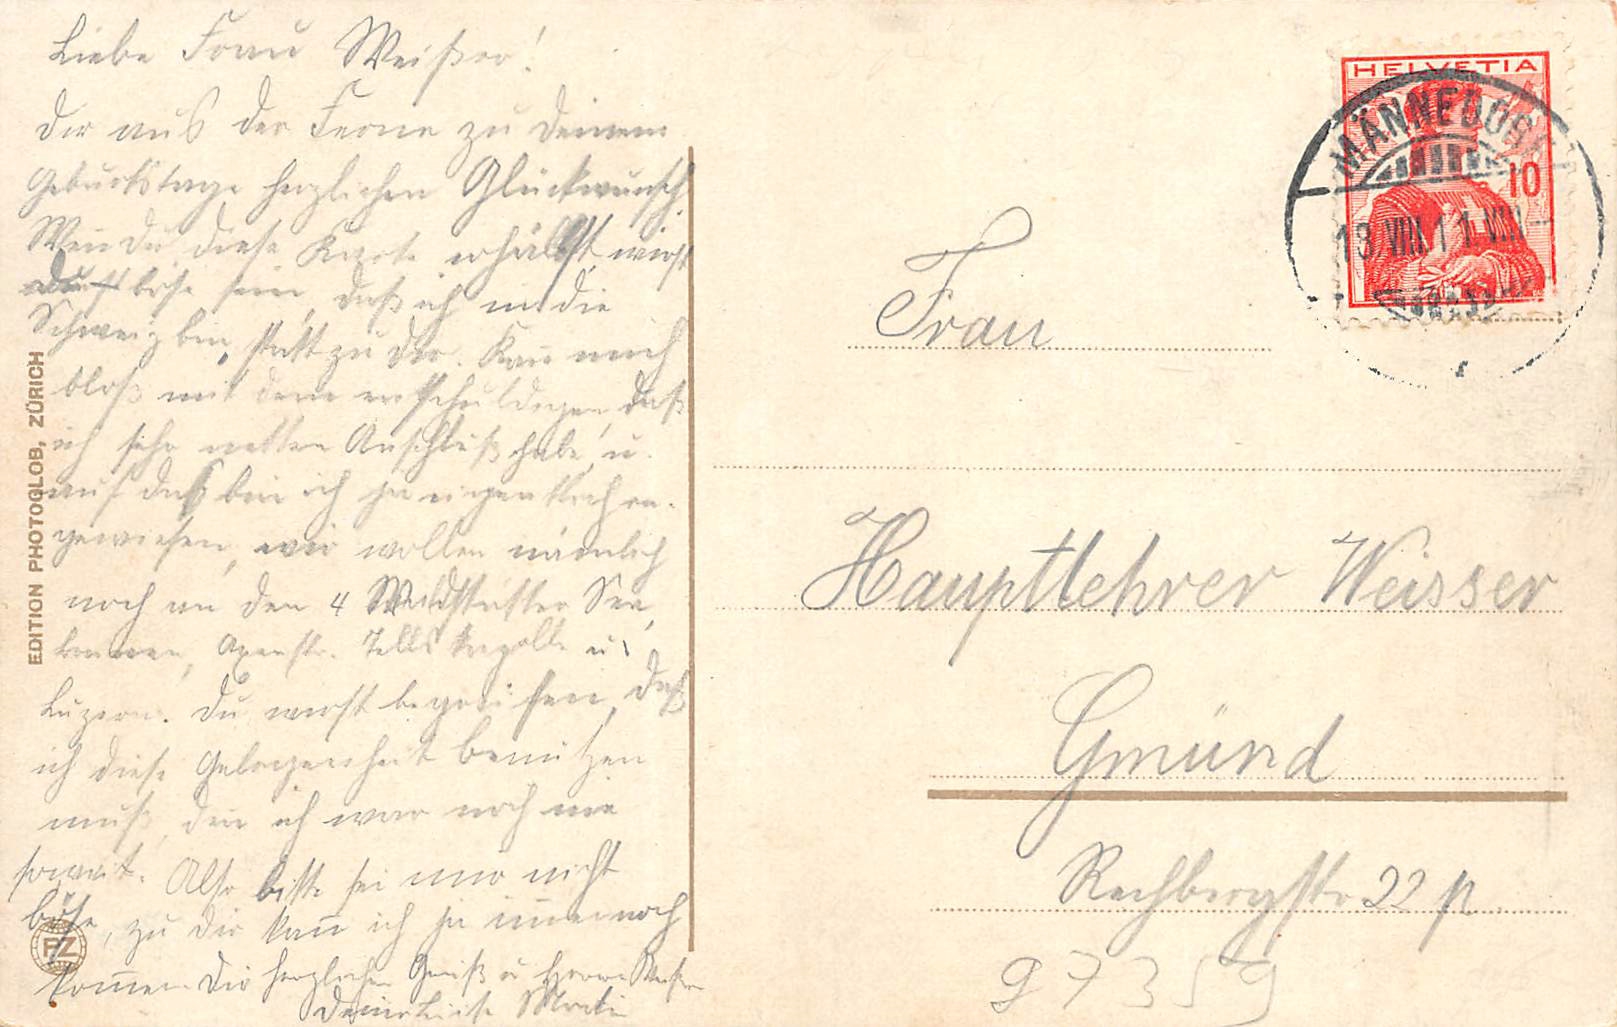 Liebe Frau Weißer!
Dir aus der Ferne zu Deinem
Geburtstage herzlichen Glückwunsch.
Wen Du diese Karte erhältst, wirst
böse sein, daß ich in die
Schweiz bin, statt zu Dir. Kan mich
bloß mit dem entschuldigen, daß
ich sehr netten Anschluß habe, u.
auf das bin ich ja eigentlich an-
gewiesen, wir wollen nämlich
noch an den 4 Waldstätter See,
kommen, Axenstr. Tells Kapelle u.
Luzern. Du wirst begreifen, daß
ich diese Gelegenheit benützen
muß, den ich war noch nie
soweit. Also bitte sei mir nicht
böse, zu Dir kan̄ ich ja im̄er noch
kom̄en. Dir herzlichen Gruß u Herrn Weißer
Deine
EDITION PHOTOGLOB, ZÜRICH
PZ
HELVETIA
10
MÄNNEDORF
13. VIII. 11. VIII
Frau
Hauptlehrer Weisser
Gmünd
Rechbergstr 22 p.
97359